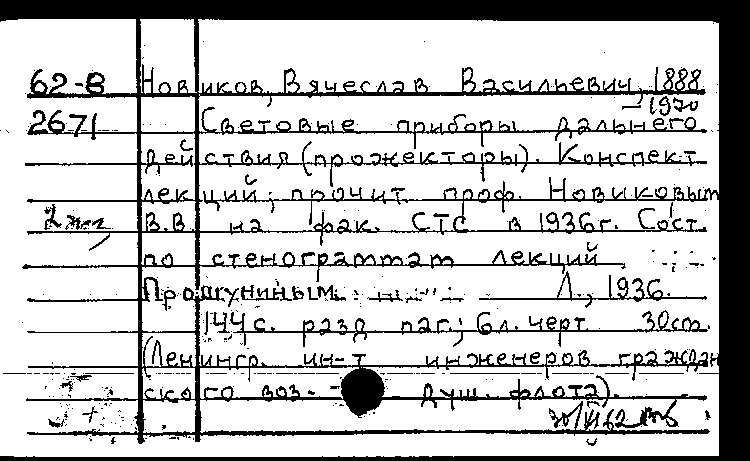 62-8 Новиков, Вячеслав Васильевич, 1888
-1970
2671 Световые приборы дальнего
действия (прожекторы). Конспект
лекций, прочит проф. Новиковым
2 экз, В.В. на фак. СТС в 1936г. Сост.
по стенограммам лекций
Прошгуниным. Л., 1936.
144 с. разд паг.; 6 л. черт 30см.
(Ленингр. ин-т инженеров граждан
ского воз- душ. флота).
30/VI 62